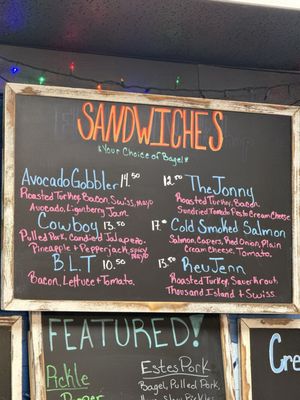 SANDWICHES
*Your Choice of Bagel*
Avocado Gobbler 14.50
Roasted Turkey, Bacon, Swiss, Mayo
Avocado, Lignonberry Jam
Cowboy 13.50
Pulled Pork, Candied Jalapeno,
Pineapple + Pepperjack Spicy Mayo
B.L.T 10.50
Bacon, Lettuce + Tomato.
12.50 The Jonny
Roasted Turkey, Bacon
Sundried Tomato Pesto Cream Cheese
Cold Smoked Salmon
Salmon, Capers, Red Onion, Plain
Cream Cheese, Tomato
13.50 Reu Jenn
Roasted Turkey, Sauerkraut,
Thousand Island + Swiss
FEATURED!
Pickle
Estes Pork
Bagel, Pulled Pork,
Pickles
Cre